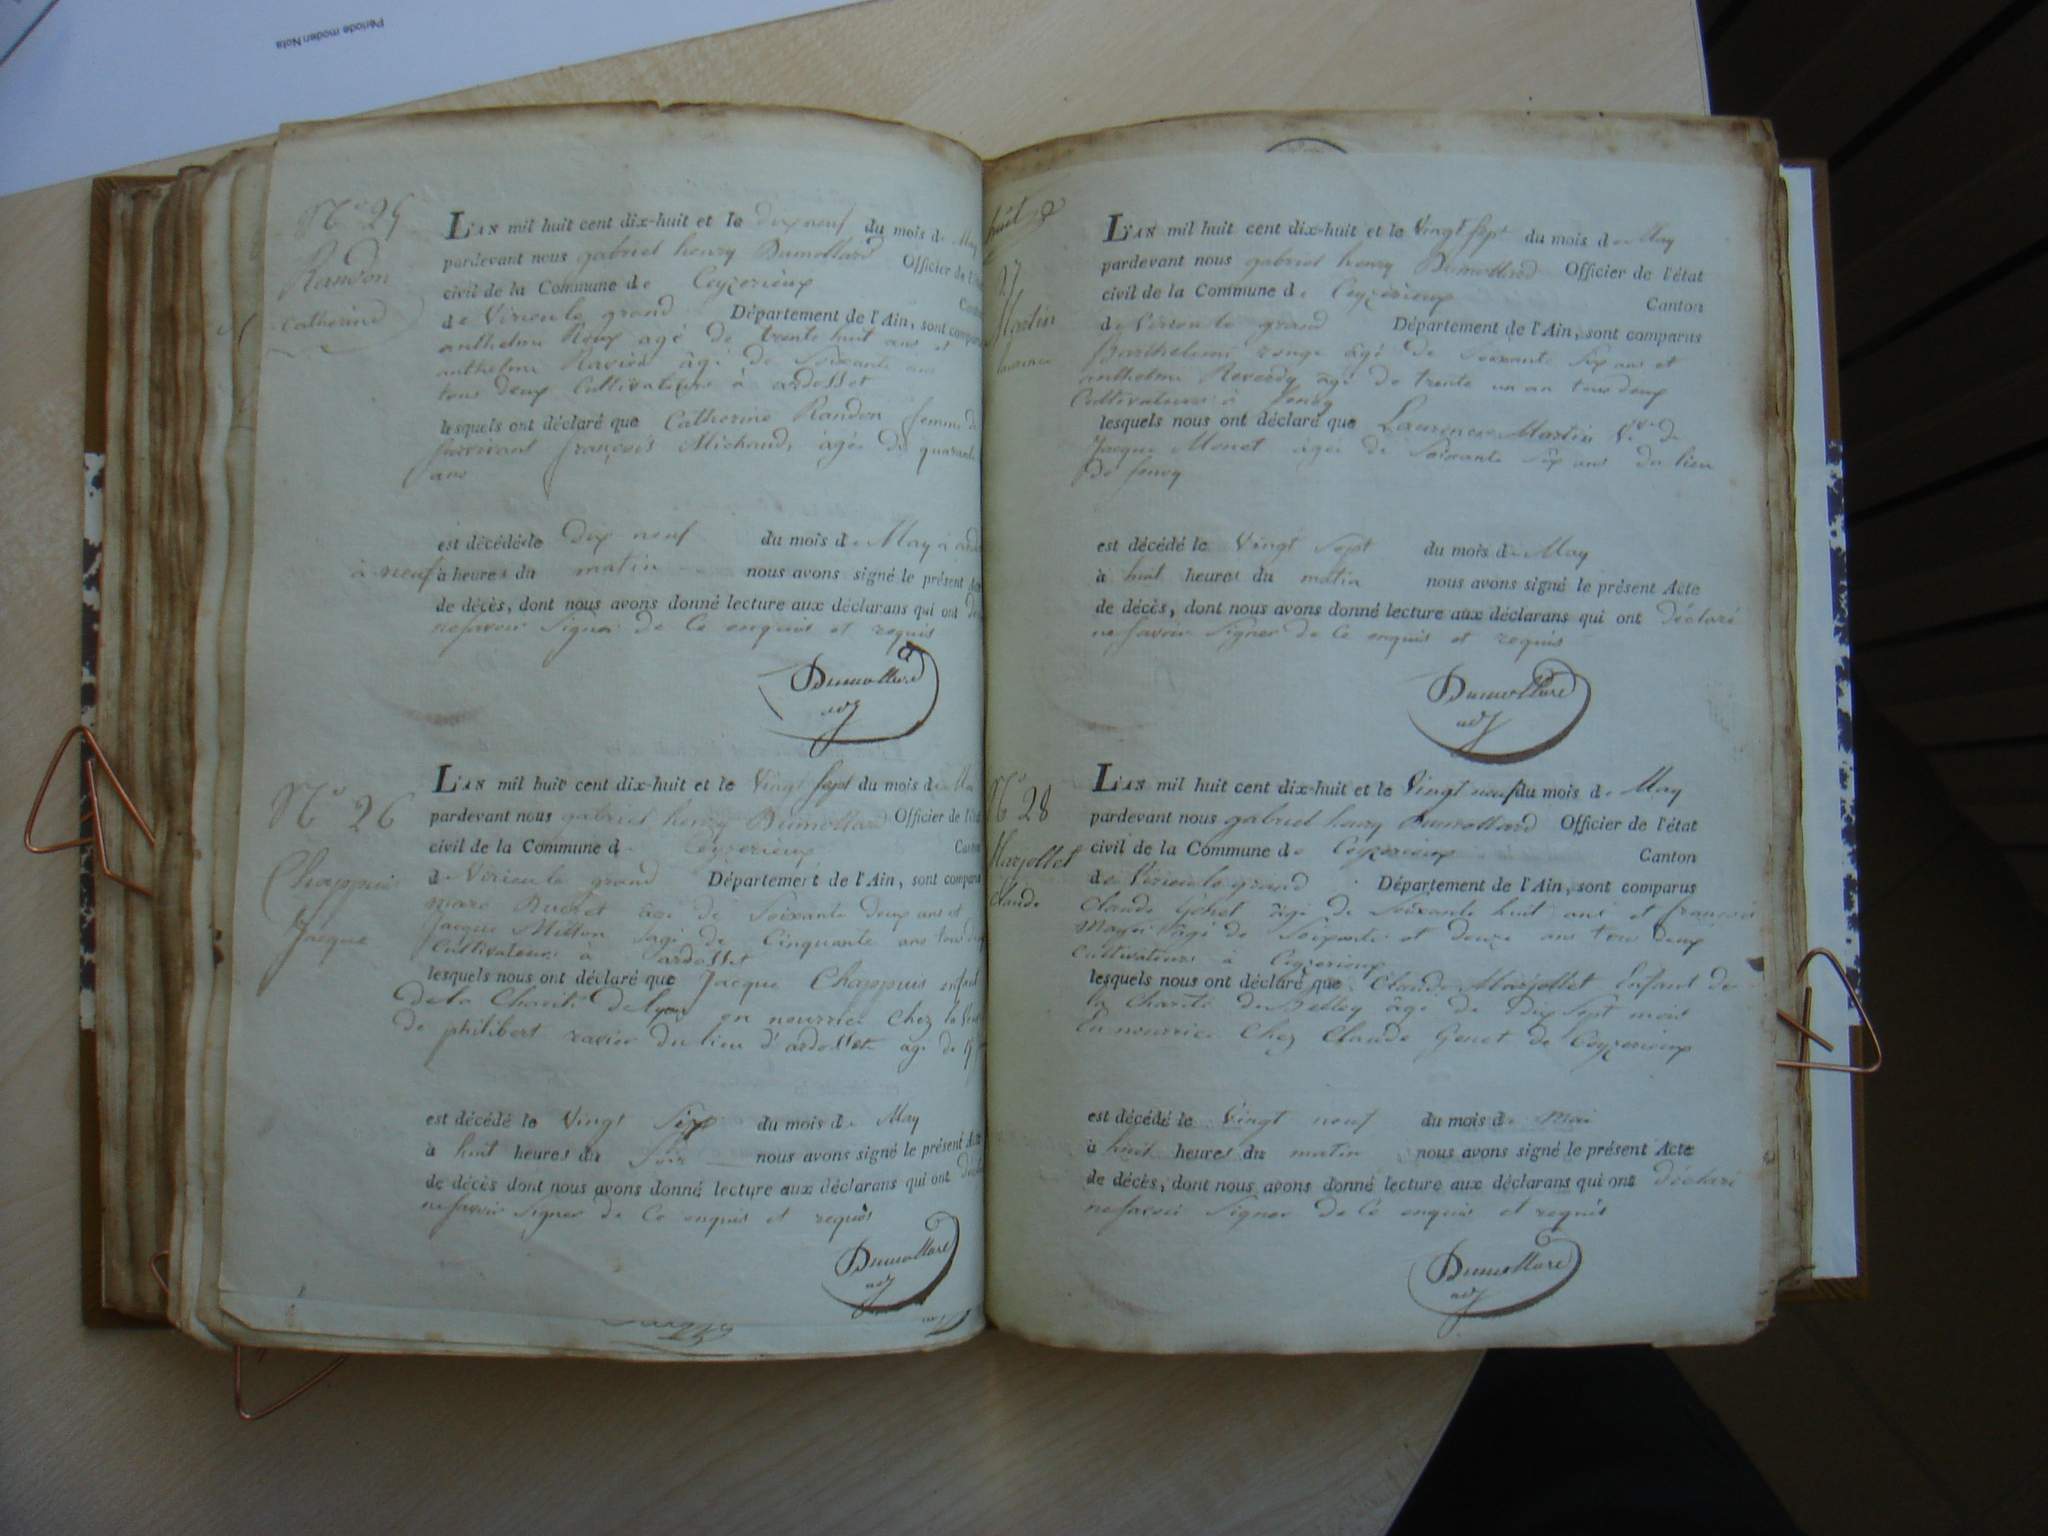 Période moden Nota
N° 25
Randon
Catherine
L'AN mil huit cent dix-huit et le dix neuf du mois de May
pardevant nous gabriel henry Dumollard Officier de l'
civil de la Commune de Ceyzerieux
de Virieu le grand Département de l'Ain, sont comparus
anthelme Roux agé de trente huit ans et
anthelme Ravier âgé de Soixante ans
tous deux Cultivateurs à ardosset
lesquels ont déclaré que Catherine Randon femme de
survivant françois Michaud, âgée de quarante
ans
est décédé le dix neuf du mois de May à
à neuf à heures du matin nous avons signé le présent Acte
de décès, dont nous avons donné lecture aux déclarans qui ont
ne savoir Signer de Ce enquis et requis
Dumollard
adj
N° 26
Chappuis
Jacque
L'AN mil huit cent dix-huit et le Vingt sept du mois de
pardevant nous gabriel henry Dumollard Officier de l'
civil de la Commune de Ceyzerieux
de Virieu le grand Département de l'Ain, sont comparus
marc âgé de Soixante deux ans et
Jacque Millon agé de Cinquante ans tous
Cultivateurs à ardosset
lesquels nous ont déclaré que Jacque Chappuis enfant
de la Charité de lyon en nourrice Chez la
de philibert ravier du lieu d'ardosset agé de
est décédé le Vingt Six du mois de May
à huit heures du Soir nous avons signé le présent
de décès dont nous avons donné lecture aux déclarans qui ont
ne savoir Signer de Ce enquis et requis
Dumollard
adj
huit
27
Martin
laurence
L'AN mil huit cent dix-huit et le Vingt sept du mois de May
pardevant nous gabriel henry Dumollard Officier de l'état
civil de la Commune de Ceyzerieux Canton
de Virieu le grand Département de l'Ain, sont comparus
Barthelemi rouge âgé de Soixante Six ans et
anthelme Reverdy âgé de trente un an tous deux
Cultivateurs à
lesquels nous ont déclaré que Laurence Martin Vve de
Jacque Monet âgée de Soixante Six ans du lieu
De
est décédé le Vingt Sept du mois de May
à huit heures du matin nous avons signé le présent Acte
de décès, dont nous avons donné lecture aux déclarans qui ont déclaré
ne savoir Signer de Ce enquis et requis
Dumollard
adj
N° 28
Marjollet
Claude
L'AN mil huit cent dix-huit et le Vingt neuf du mois de May
pardevant nous gabriel henry Dumollard Officier de l'état
civil de la Commune de Ceyzerieux Canton
de Virieu le grand Département de l'Ain, sont comparus
Claude Genet âgé de Soixante huit ans et françois
âgé de Soixante et douze ans tous deux
Cultivateurs à Ceyzerieux
lesquels nous ont déclaré que Claude Marjollet Enfant de
la Charité de Belley âgé de Dix Sept mois
En nourrice Chez Claude Genet de Ceyzerieux
est décédé le Vingt neuf du mois de Mai
à huit heures du matin nous avons signé le présent Acte
de décès, dont nous avons donné lecture aux déclarans qui ont déclaré
ne savoir Signer de Ce enquis et requis
Dumollard
adj